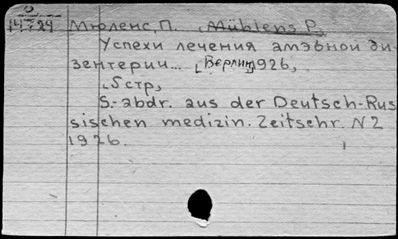 О
14724 Мюленс, П. Mühlens P.
Успехи лечения амэбной ди-
зентерии... [Берлин] 1926,
5 стр,
S.-abdr. aus der Deutsch-Rus
sischen medizin. Zeitschr. N 2
1926.